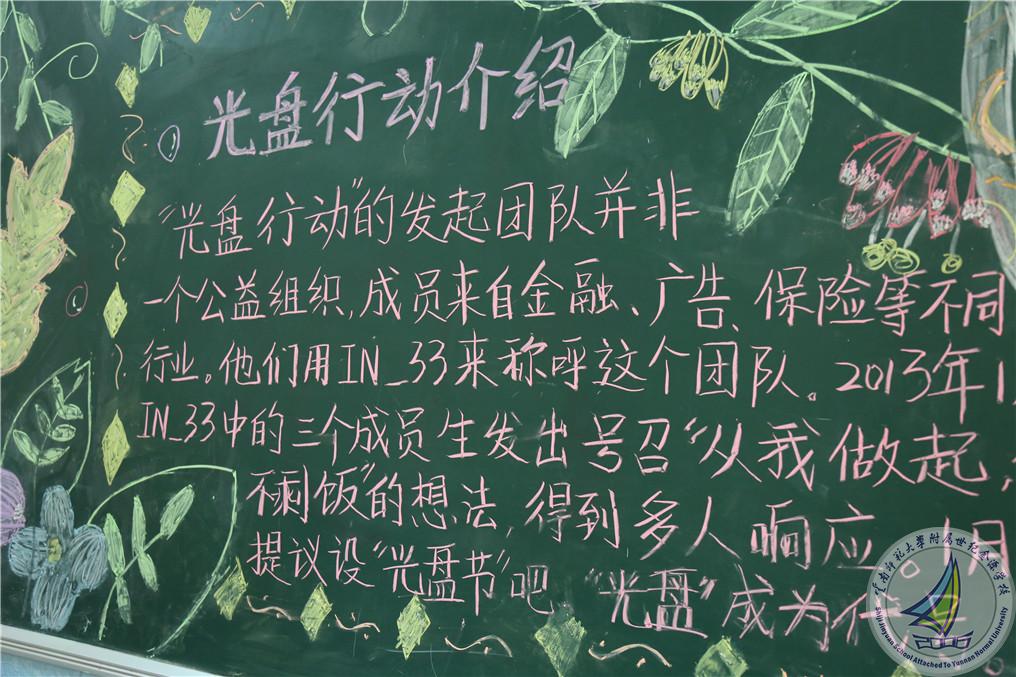 光盘行动介绍
“光盘行动”的发起团队并非
一个公益组织,成员来自金融、广告、保险等不同
行业。他们用IN_33来称呼这个团队。2013年1
IN_33中的三个成员生发出号召“从我做起,
不剩饭”的想法,得到多人响应。1月
提议设“光盘节”吧 “光盘”成为
云南师范大学附属世纪金源学校
Shiji Jinyuan School Attached To Yunnan Normal University